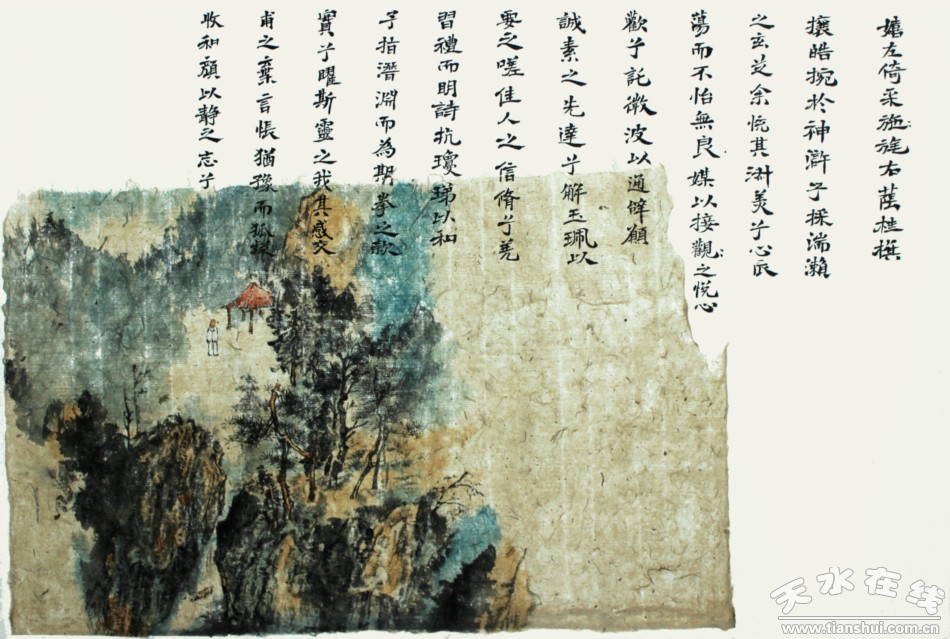 嬉左倚采施旄右蔭桂旗
攘皓捥於神滸兮採湍瀨
之玄芝余悅其淑美兮心
蕩而不怡無良媒以接觀之悅心
歡兮託微波以通辭願
誠素之先達兮解玉珮以
要之嗟佳人之信脩兮羌
習禮而明詩抗瓊珶以和
予指潛淵而為期拳之款
實兮曜斯靈之我其感交
甫之棄言悵猶豫而狐疑
收和顏以静之志兮
天水在线
www.tianshui.com.cn